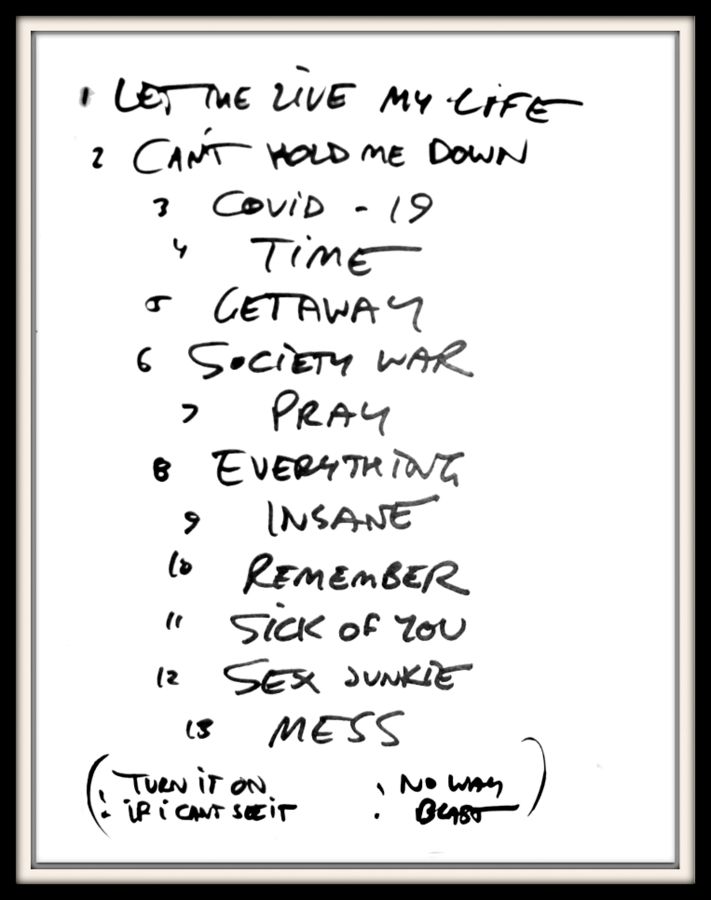 1 LET ME LIVE MY LIFE
2 CAN'T HOLD ME DOWN
3 COVID - 19
4 TIME
5 GETAWAY
6 SOCIETY WAR
7 PRAY
8 EVERYTHING
9 INSANE
10 REMEMBER
11 SICK OF YOU
12 SEX JUNKIE
13 MESS
( TURN IT ON NO WAY )
IF I CANT SEE IT BEAST